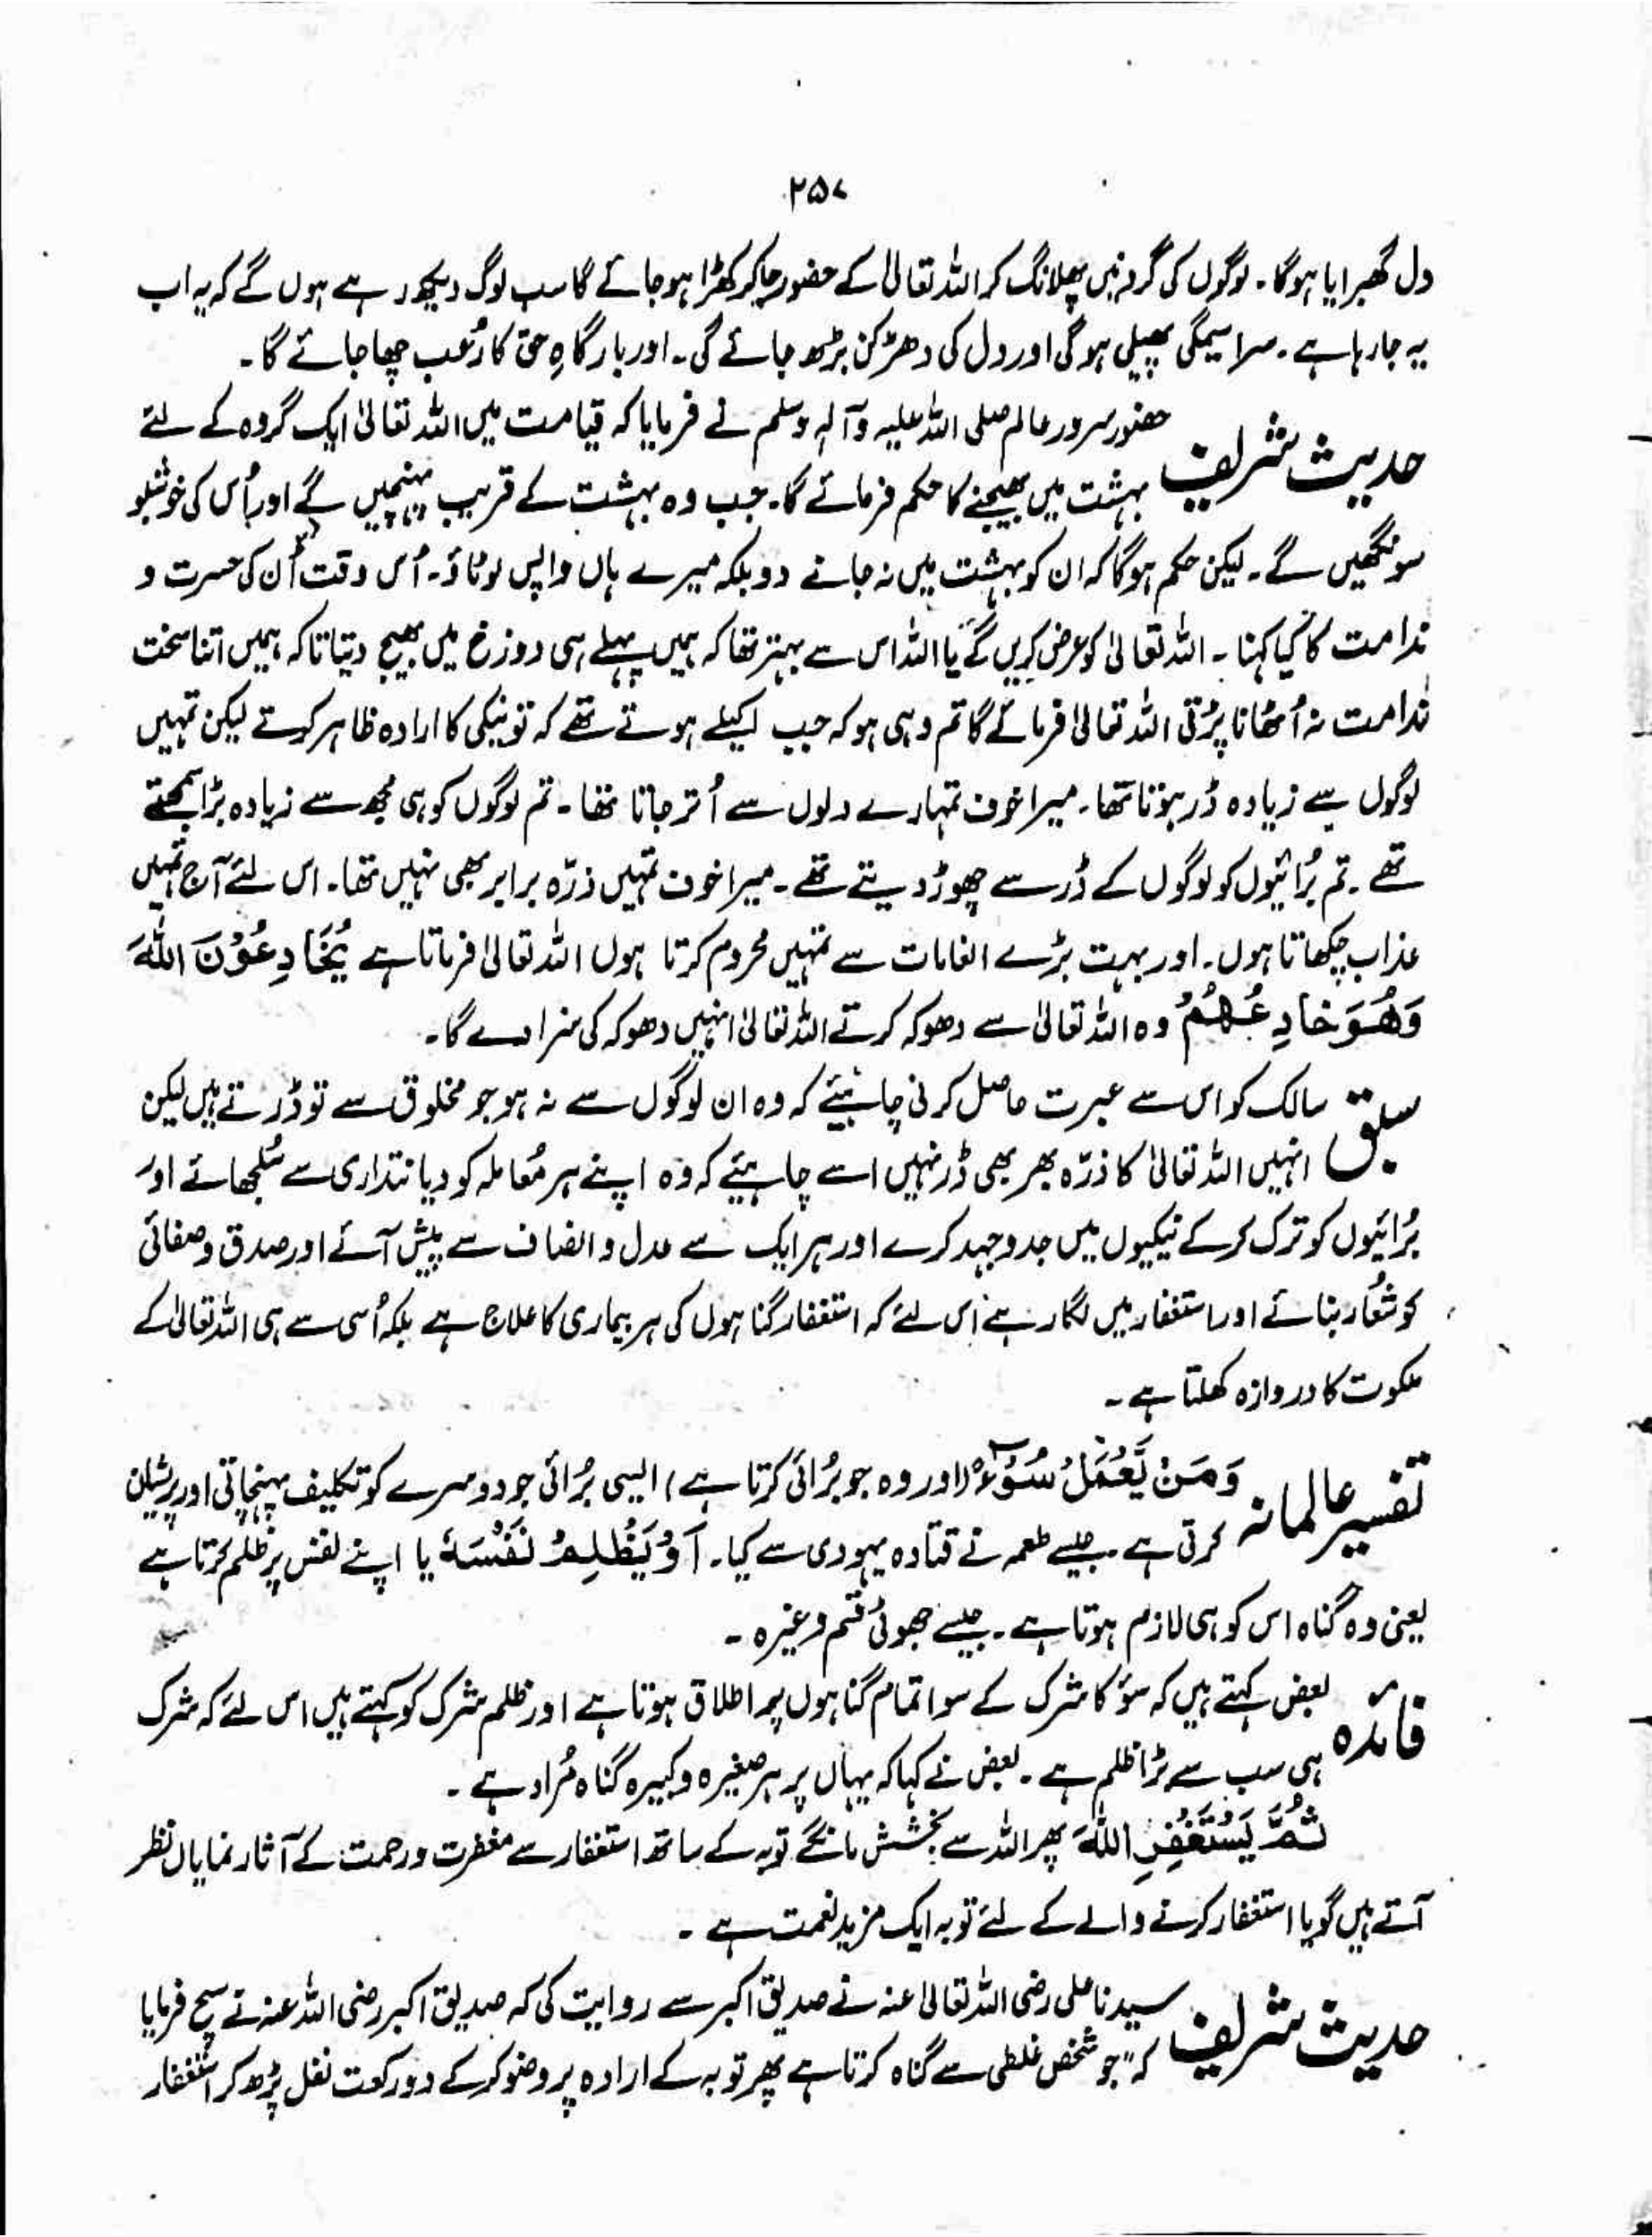 ۲۵۷
دل گھبرایا ہوگا۔ لوگوں کی گردنیں پھلانگ کر اللہ تعالیٰ کے حضور جا کر کھڑا ہو جائے گا سب لوگ دیکھ رہے ہوں گے کہ یہ اب
یہ جا رہا ہے۔ سراسیمگی پھیلی ہوگی اور دل کی دھڑکن بڑھ جائے گی۔ اور بارگاہِ حق کا رُعب چھا جائے گا۔
حدیث شریف حضور سرور عالم صلی اللہ علیہ وآلہٖ وسلم نے فرمایا کہ قیامت میں اللہ تعالیٰ ایک گروہ کے لئے
بہشت میں بھیجنے کا حکم فرمائے گا۔ جب وہ بہشت کے قریب پہنچیں گے اور اُس کی خوشبو
سونگھیں گے۔ لیکن حکم ہوگا کہ ان کو بہشت میں نہ جانے دو بلکہ میرے ہاں واپس لوٹاؤ۔ اُس وقت اُن کی حسرت و
ندامت کا کیا کہنا۔ اللہ تعالیٰ کو عرض کریں گے یا اللہ اس سے بہتر تھا کہ ہمیں پہلے ہی دوزخ میں بھیج دیتا تاکہ ہمیں اتنا سخت
ندامت نہ اُٹھانا پڑتی اللہ تعالیٰ فرمائے گا تم وہی ہو کہ جب اکیلے ہوتے تھے کہ تو نیکی کا ارادہ ظاہر کرتے لیکن تمہیں
لوگوں سے زیادہ ڈر ہوتا تھا۔ میرا خوف تمہارے دلوں سے اُتر جاتا تھا۔ تم لوگوں کو ہی مجھ سے زیادہ بڑا سمجھتے
تھے۔ تم بُرائیوں کو لوگوں کے ڈر سے چھوڑ دیتے تھے۔ میرا خوف تمہیں ذرّہ برابر بھی نہیں تھا۔ اس لئے آج تمہیں
عذاب چکھاتا ہوں۔ اور بہت بڑے انعامات سے تمہیں محروم کرتا ہوں اللہ تعالیٰ فرماتا ہے یُخَادِعُوْنَ اللّٰہَ
وَھُوَ خَادِعُھُمْ وہ اللہ تعالیٰ سے دھوکہ کرتے اللہ تعالیٰ انہیں دھوکہ کی سزا دے گا۔
سبق سالک کو اس سے عبرت حاصل کرنی چاہیئے کہ وہ ان لوگوں سے نہ ہو جو مخلوق سے تو ڈرتے ہیں لیکن
انہیں اللہ تعالیٰ کا ذرّہ بھر بھی ڈر نہیں اسے چاہیئے کہ وہ اپنے ہر مُعاملہ کو دیانتداری سے سُلجھائے اور
بُرائیوں کو ترک کر کے نیکیوں میں جدوجہد کرے اور ہر ایک سے عدل و انصاف سے پیش آئے اور صدق و صفائی
کو شعُار بنائے اور استغفار میں لگا رہے اس لئے کہ استغفار گناہوں کی ہر بیماری کا علاج ہے بلکہ اُسی سے ہی اللہ تعالیٰ کے
ملکوت کا دروازہ کھلتا ہے۔
تفسیر عالمانہ وَمَنْ یَّعْمَلْ سُوْٓءًا (اور وہ جو بُرائی کرتا ہے) ایسی بُرائی جو دوسرے کو تکلیف پہنچاتی اور پریشان
کرتی ہے۔ جیسے طعمہ نے قتادہ یہودی سے کیا۔ اَوْ یَظْلِمْ نَفْسَہٗ یا اپنے نفس پر ظلم کرتا ہے
یعنی وہ گناہ اس کو ہی لازم ہوتا ہے۔ جیسے جھوٹی قسم وغیرہ۔
فائدہ بعض کہتے ہیں کہ سوٗ کا شرک کے سوا تمام گناہوں پر اطلاق ہوتا ہے اور ظلم شرک کو کہتے ہیں اس لئے کہ شرک
ہی سب سے بڑا ظلم ہے۔ بعض نے کہا کہ یہاں پر ہر صغیرہ و کبیرہ گناہ مُراد ہے۔
ثُمَّ یَسْتَغْفِرِ اللّٰہَ پھر اللہ سے بخشش مانگے توبہ کے ساتھ استغفار سے مغفرت و رحمت کے آثار نمایاں نظر
آتے ہیں گویا استغفار کرنے والے کے لئے توبہ ایک مزید نعمت ہے۔
حدیث شریف سیدنا علی رضی اللہ تعالیٰ عنہ نے صدیق اکبر سے روایت کی کہ صدیق اکبر رضی اللہ عنہ نے سچ فرمایا
کہ "جو شخص غلطی سے گناہ کرتا ہے پھر توبہ کے ارادہ پر وضو کر کے دو رکعت نفل پڑھ کر استغفار